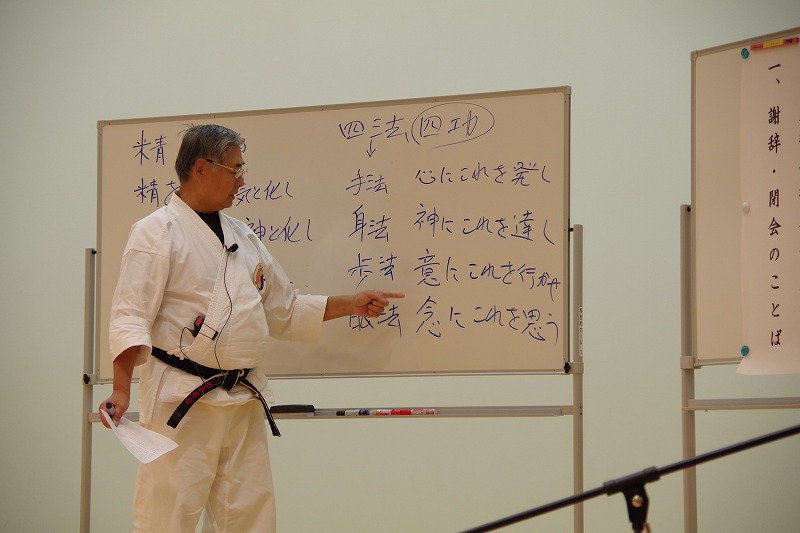 精
精を 気と化し
神と化し
四法、四功
↓
手法 心にこれを発し
身法 神にこれを達し
歩法 意にこれを行かせ
眼法 念にこれを思う
一、謝辞・閉会のことば